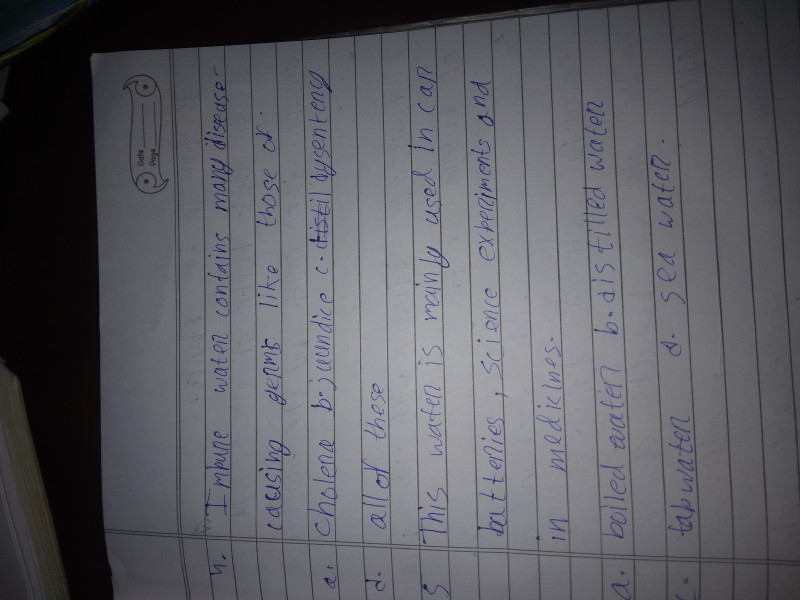 Date
Page
4. Impure water contains many disease-
causing germs like those of.
a. cholera b. juundice c. distil dysenteny
d. all of these
5 This water is mainly used in car
batteries, science experiments and
in medicines.
a. boiled water b. distilled water
c. tap water d. sea water.